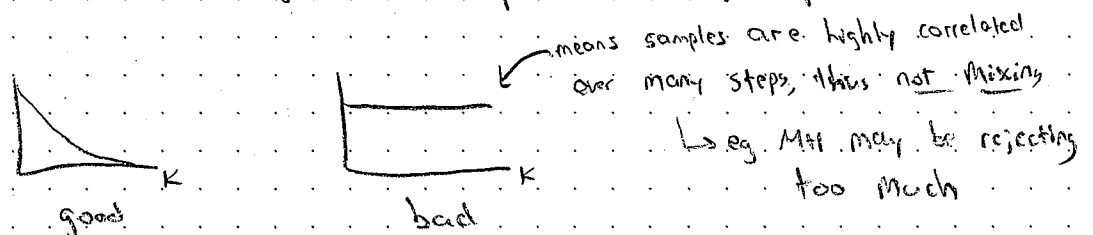 means samples are highly correlated
over many steps, thus not Mixing
↳ eg. MH may be rejecting
too much
K
good
K
bad